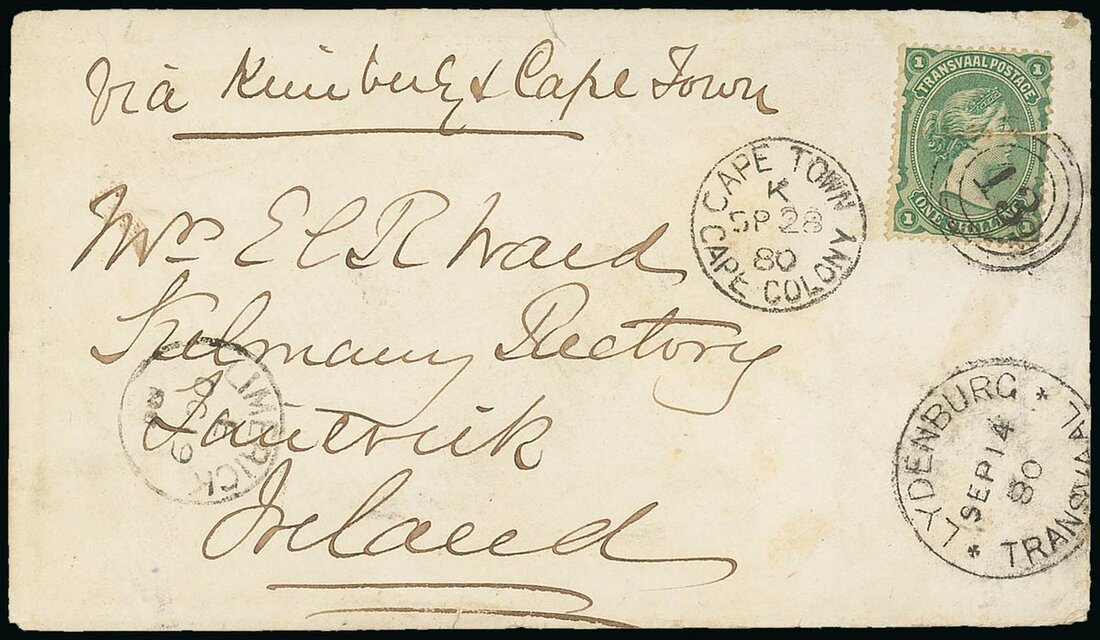 via Kimberly & Cape Town
1 TRANSVAAL POSTAGE 1
1 ONE SHILLING
CAPE TOWN
K
SP 28
80
CAPE COLONY
Mrs E C R Ward
Rectory
Ireland
LIMERICK
LYDENBURG
SEP 14
80
TRANSVAAL